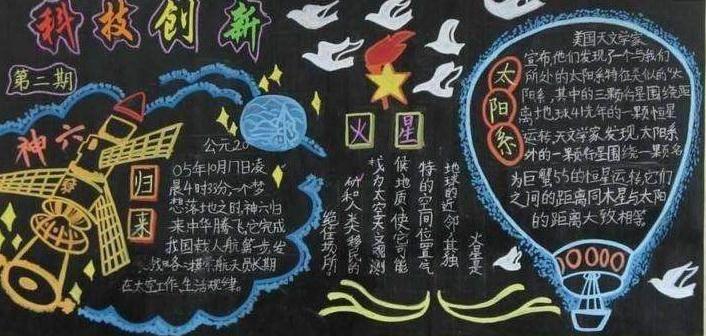 科技创新
第二期
神六
归来
公元20
05年10月17日凌
晨4时33分,一个梦
想落地之时,神六归
来中华腾飞它完成
我国载人航第一步,发
航天员长期
在太空工作、生活规律。
火星
火星是
地球的近邻,其独
特的空间位置气
候地质,使它可能
成为太空天文观测
所和人类移民的
绝佳场所
太阳系
美国天文学家
宣布,他们发现了一个与我们
所处的太阳系特征类似的“太
阳系,其中的三颗行星围绕距
离地球41光年的一颗恒星
运转,天文学家发现,太阳系
外的一颗行星围绕一颗名
为巨蟹55的恒星运转,它们
之间的距离同木星与太阳
的距离大致相等。